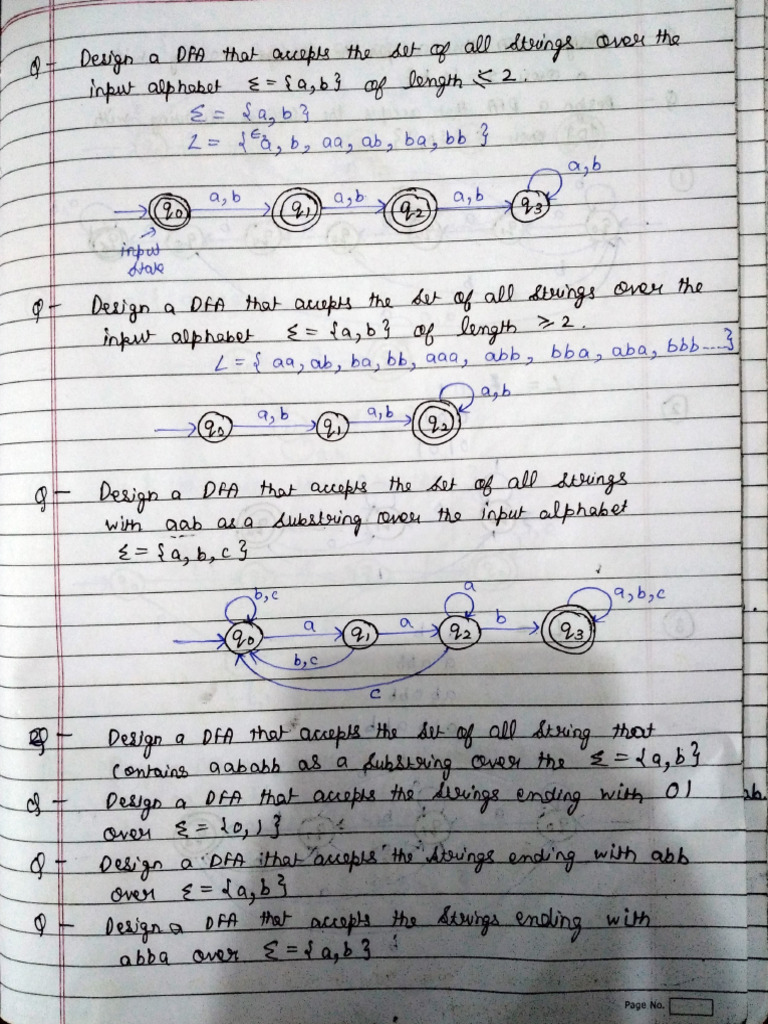 Q- Design a DFA that accepts the set of all strings over the
input alphabet Σ = {a, b} of length ≤ 2.
Σ = {a, b}
L = {ϵ, a, b, aa, ab, ba, bb}
a,b
q0 a,b q1 a,b q2 a,b q3
input
state
Q- Design a DFA that accepts the set of all strings over the
input alphabet Σ = {a, b} of length ≥ 2.
L = {aa, ab, ba, bb, aaa, abb, bba, aba, bbb.....}
a,b
q0 a,b q1 a,b q2
Q- Design a DFA that accepts the set of all strings
with aab as a substring over the input alphabet
Σ = {a, b, c}
b,c a a,b,c
q0 a q1 a q2 b q3
b,c
c
Q- Design a DFA that accepts the set of all string that
contains aababb as a substring over the Σ = {a, b}
Q- Design a DFA that accepts the strings ending with 01
over Σ = {0, 1}
Q- Design a DFA that accepts the strings ending with abb
over Σ = {a, b}
Q- Design a DFA that accepts the strings ending with
abba over Σ = {a, b}
Page No.